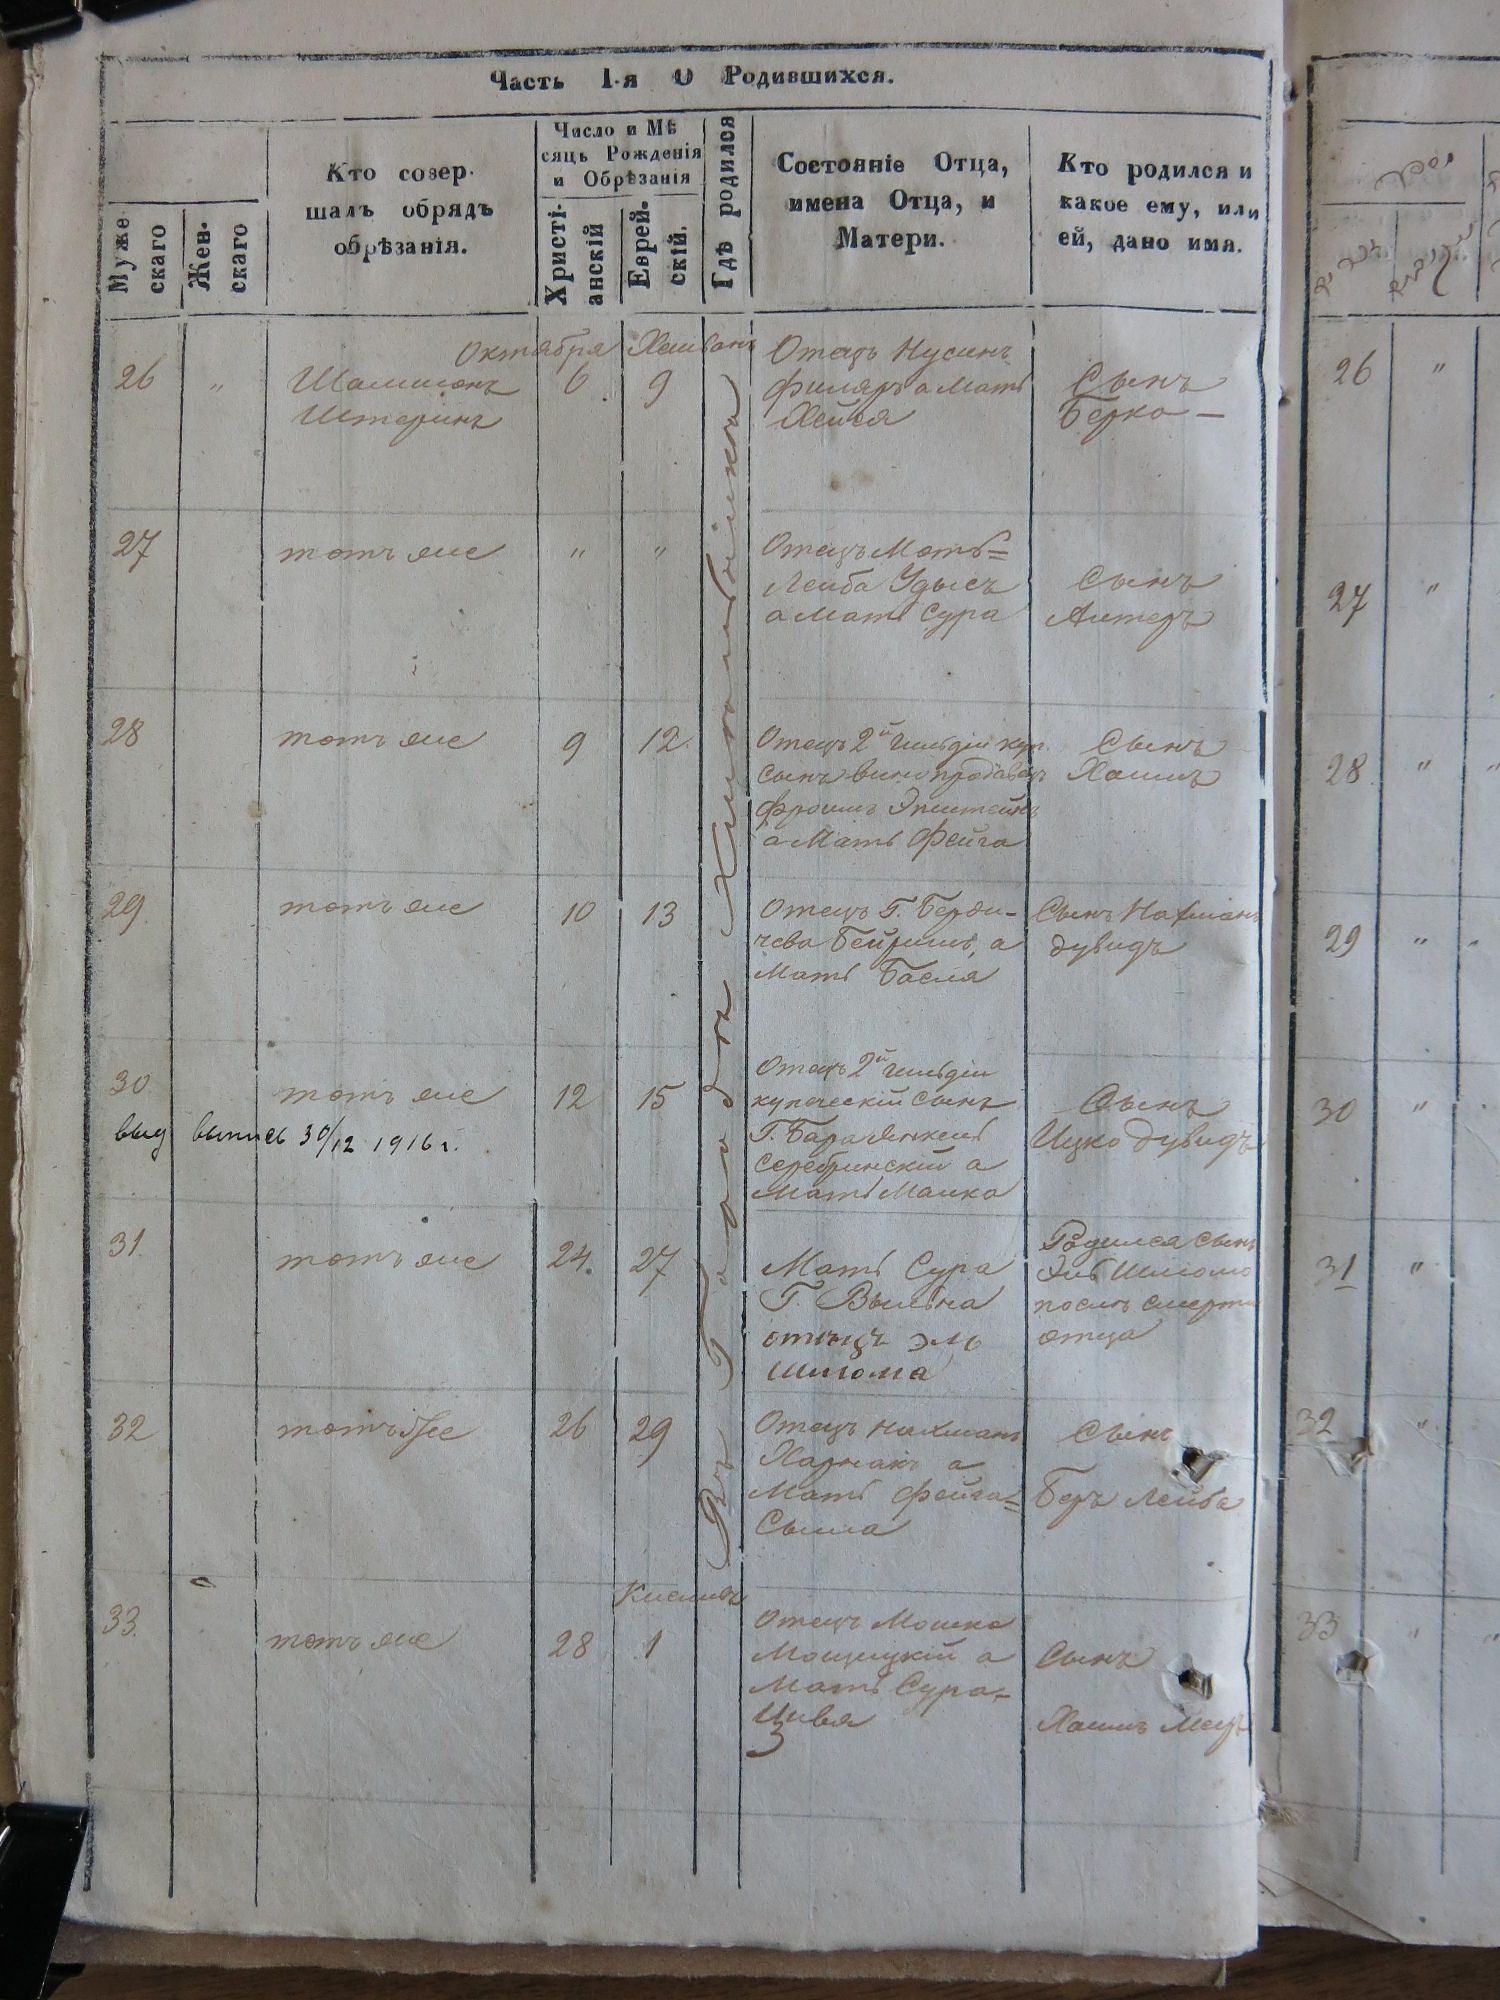 Часть I-я О Родившихся.
Муже
скаго
Жен-
скаго
Кто совер-
шалъ обрядъ
обрѣзанія.
Число и Мѣ
сяцъ Рожденія
и Обрѣзанія
Христі-
анскій
Еврей-
скій.
Гдѣ родился
Состояніе Отца,
имена Отца, и
Матери.
Кто родился и
какое ему, или
ей, дано имя.
Октября Хешванъ
26 " Шамшонъ 6 9 Отецъ Нусинъ
Штеринъ
Филяръ а Мать
Хейся
Сынъ
Берко —
Въ Городѣ
27 тотъ же " " Отецъ Моть=
Лейба Удысъ
а Мать Сура
Сынъ
Алтеръ
28 тотъ же 9 12 Отецъ 2й гильдіи куп.
сынъ винопродавецъ
Фроимъ Эпштейнъ
а Мать Фейга
Сынъ
Хаимъ
29. тотъ же 10 13 Отецъ Г. Берди-
чева Бейришъ, а
Мать Бася
Сынъ Нахманъ
Дувидъ
30 тотъ же 12 15 Отецъ 2й гильдіи
купеческій сынъ
Г. Бара Янкель
Серебринскій а
Мать Малка
Сынъ
Ицко Дувидъ
выд выпись 30/12 1916 г.
31. тотъ же 24. 27 Мать Сура
Г. Вильна
отецъ Эль
Шлома
Родился сынъ
Эль Шломо
послѣ смерти
отца
32 тотъ же 26 29 Отецъ Нахманъ
Харнакъ а
Мать Фейга=
Сыма
Сынъ
Беръ Лейба
Кислевъ
33. тотъ же 28 1 Отецъ Мошко
Мощицкій а
Мать Сура-
Цивя
Сынъ
Хаимъ Меер
26 "
27 "
28 " "
29 "
30 "
31 "
32 "
33 " "